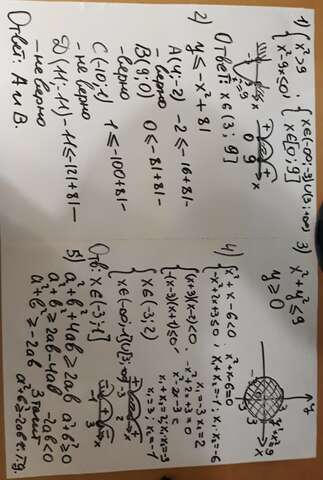 1) { x² > 9
x² - 9x ≤ 0
{ x ∈ (-∞; -3) ∪ (3; +∞)
x ∈ [0; 9]
0 9 x
Ответ: x ∈ (3; 9]
2) y ≤ -x² + 81
A(4; -2) -2 ≤ -16 + 81 -
- верно
B(9; 0) 0 ≤ -81 + 81 -
- верно
C(-10; 1) 1 ≤ -100 + 81 -
- не верно
D(11; -11) -11 ≤ -121 + 81 -
- не верно
Ответ: A и B.
3) x² + y² ≤ 9
y ≥ 0
y
x² + y² = 9
-3 3 x
4) { x² + x - 6 < 0
-x² + 2x + 3 ≤ 0
x² + x - 6 = 0
x₁ + x₂ = -1; x₁ · x₂ = -6
x₁ = -3 x₂ = 2
{ (x + 3)(x - 2) < 0
-(x - 3)(x + 1) ≤ 0
-x² + 2x + 3 = 0
x² - 2x - 3 = 0
x₁ + x₂ = 2; x₁ · x₂ = -3
x₁ = 3, x₂ = -1
{ x ∈ (-3; 2)
x ∈ (-∞; -1] ∪ [3; +∞)
-3 2
-1 3
Отв: x ∈ (-3; -1]
5) a² + b² + 4ab ≥ 2ab
a² + b² ≥ 0
a² + b² ≥ 2ab - 4ab
-2ab < 0
a² + b² ≥ -2ab
Значит
a² + b² ≥ -2ab ч.т.д.